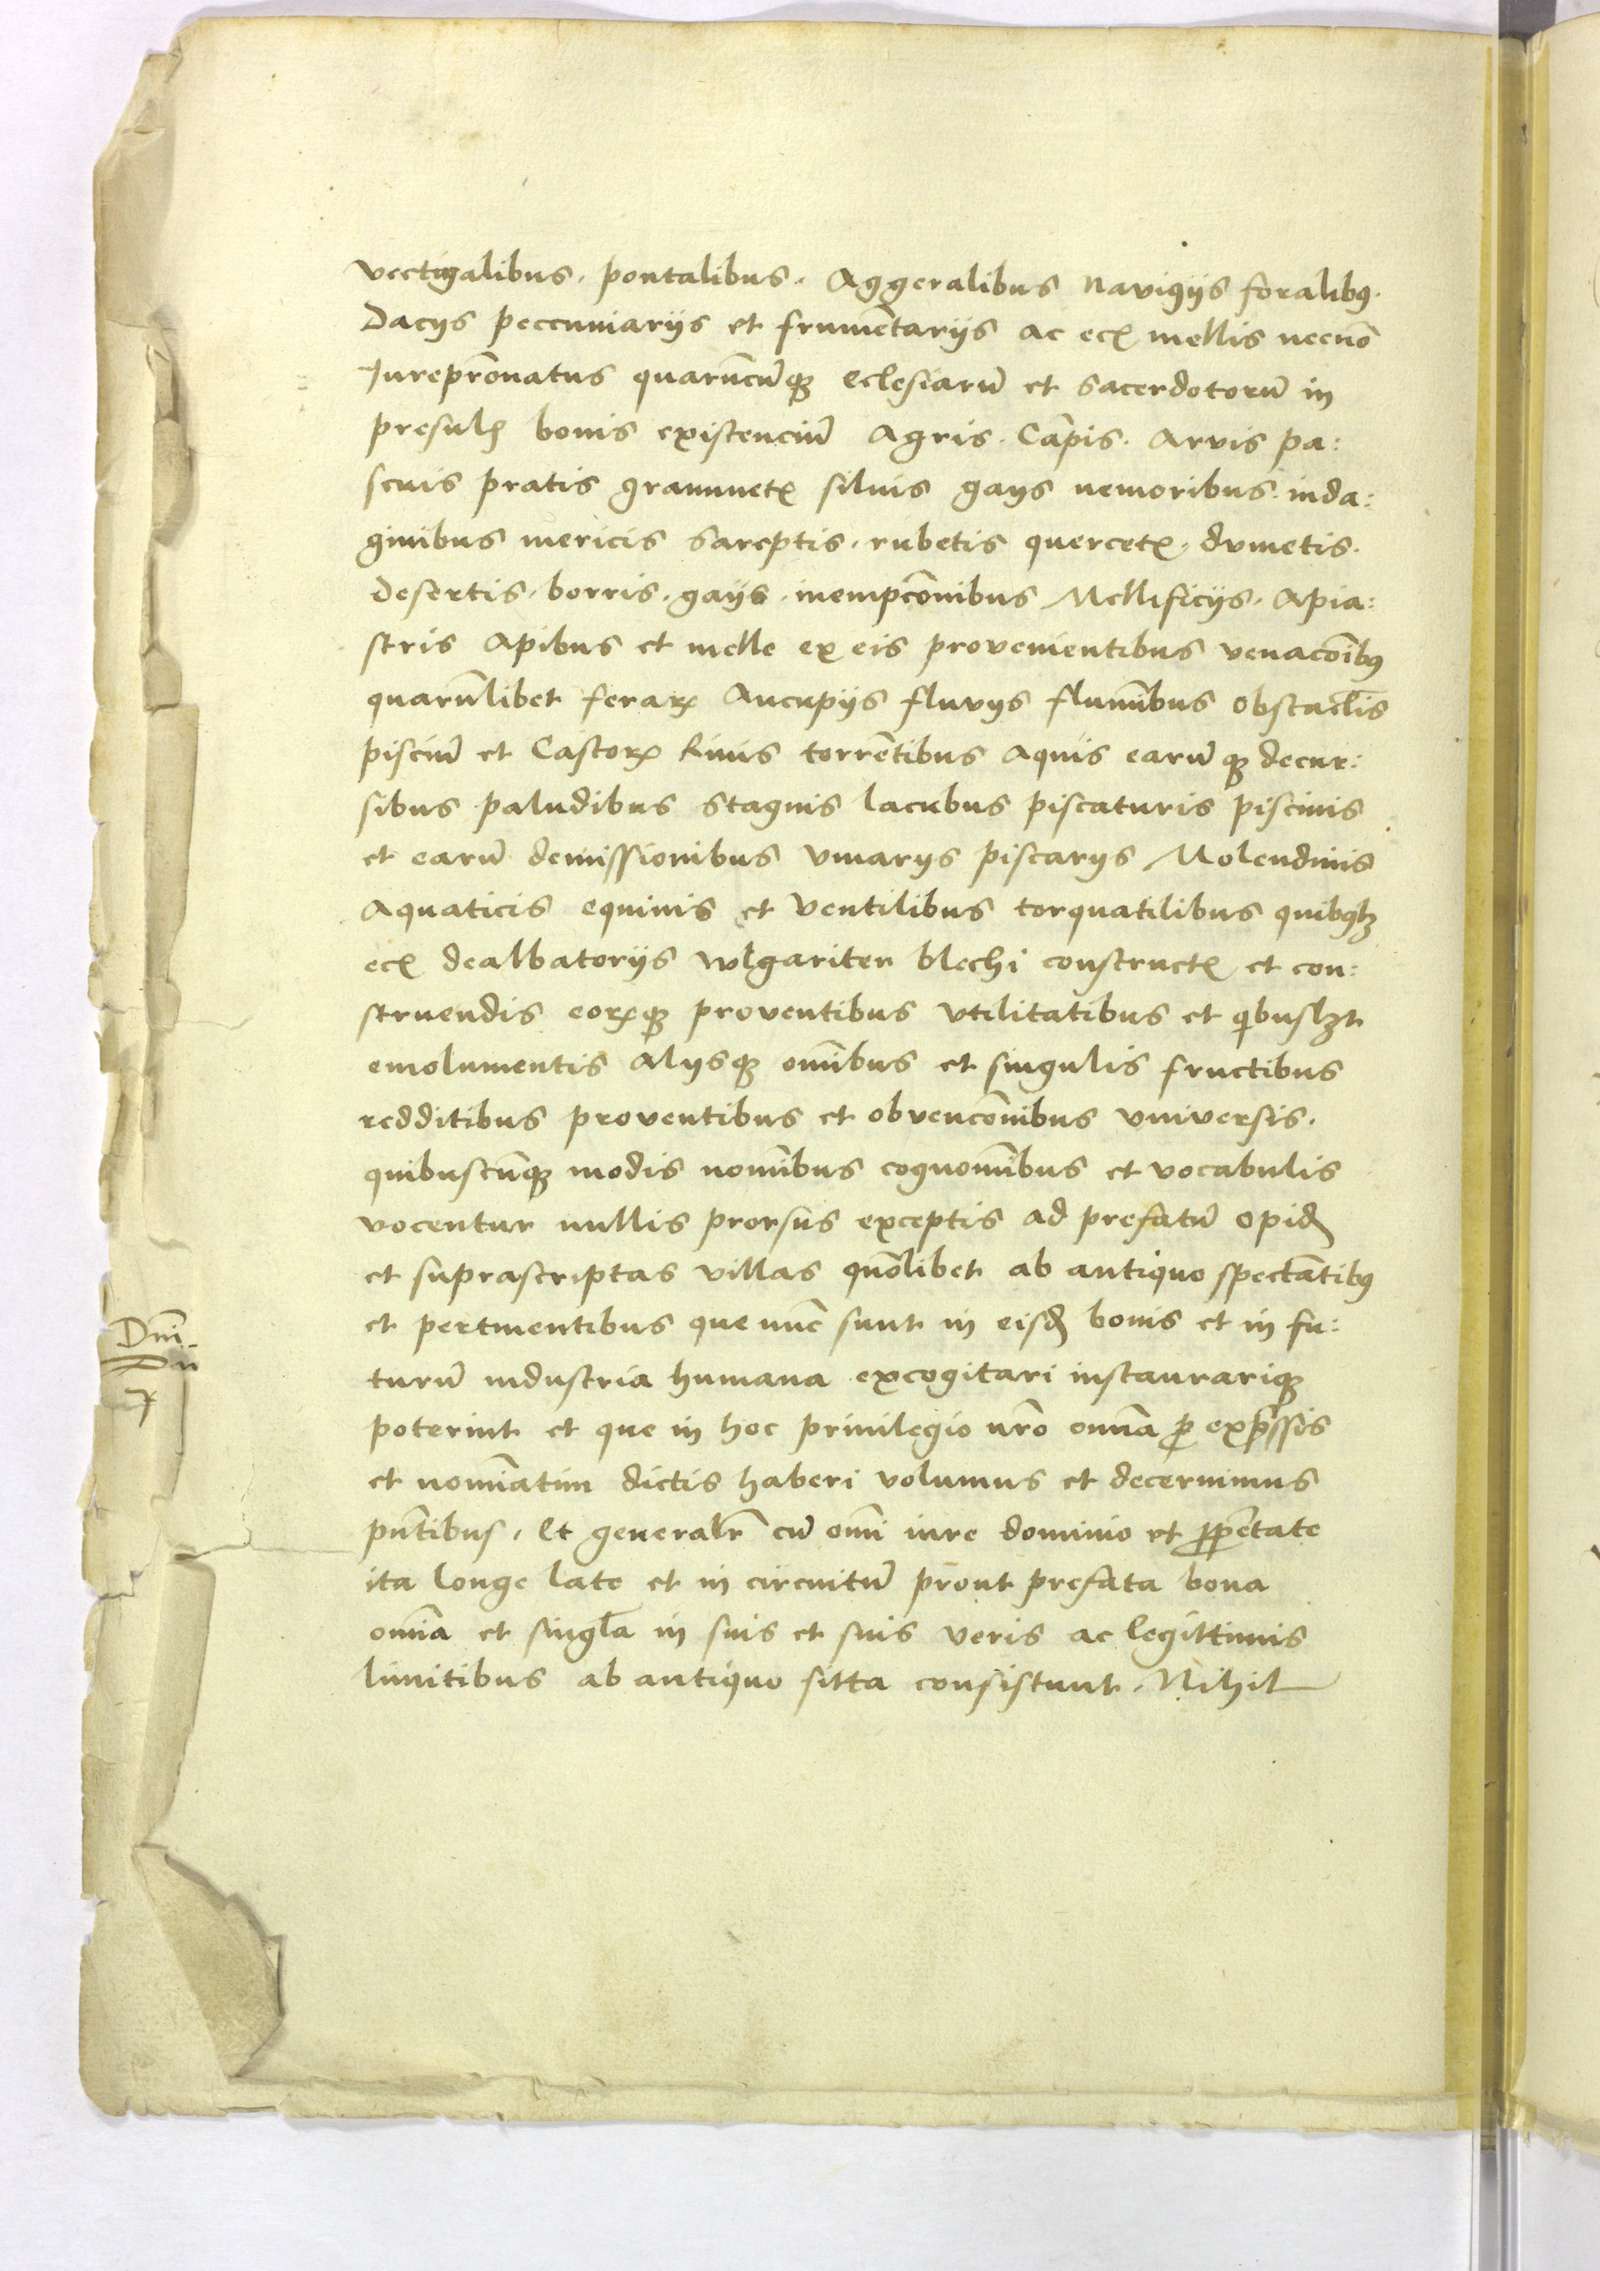 vectigalibus. pontalibus. Aggeralibus navigijs foralibꝰ.
Dacijs peccuniarijs et frumētarijs ac ecꝭ mellis necnō
Iureprōnatus quarūcūqꝫ eclesiarū et sacerdotorū in
presulꝭ bonis existenciū Agris. Cāpis. Arvis pa:
scuis pratis graminetꝭ siluis gays nemoribus. inda:
ginibus mericis sareptis. rubetis quercetꝭ. dumetis.
desertis. borris. gaijs. inempcōnibus Mellificijs. Apia:
stris Apibus et melle ex eis provenientibus venacōibꝰ
quarūlibet feraꝝ Aucupijs fluvijs flumībus obstaclīs
pisciū et Castoꝝ Riuis torrētibus aquis earū qꝫ decur:
sibus paludibus stagnis lacubus piscaturis piscinis
et earū demissionibus vivarijs piscarijs Molendinis
Aquaticis equinis et ventilibus torquatilibus quibꝰlꝫ
ecꝭ dealbatorijs wlgariter blechi constructꝭ et con:
struendis eoꝝqꝫ proventibus utilitatibus et qibuslꝫt
emolumentis alijsqꝫ omībus et singulis fructibus
redditibus proventibus et obvencōnibus universis.
quibuscūqꝫ modis nomībus cognomībus et vocabulis
vocentur nullis prorsus exceptis ad prefatū opidꝭ
et suprascriptas villas quōlibet ab antiquo spectātibꝰ
et pertinentibus que nūc sunt in eisdꝭ bonis et in fu:
turū industria humana excogitari instaurariqꝫ
poterint et que in hoc privilegio nr̄o omīa ꝓ exp̄ssis
et nomīatim dictis haberi volumus et decernimus
pn̄tibus. Et generalr̄ cū omī iure dominio et ꝓp̄etate
ita longe late et in circuitū prout prefata bona
omīa et singl̄a in suis et suis veris ac legittimis
limitibus ab antiquo sitta consistunt. Nihil
Dnī